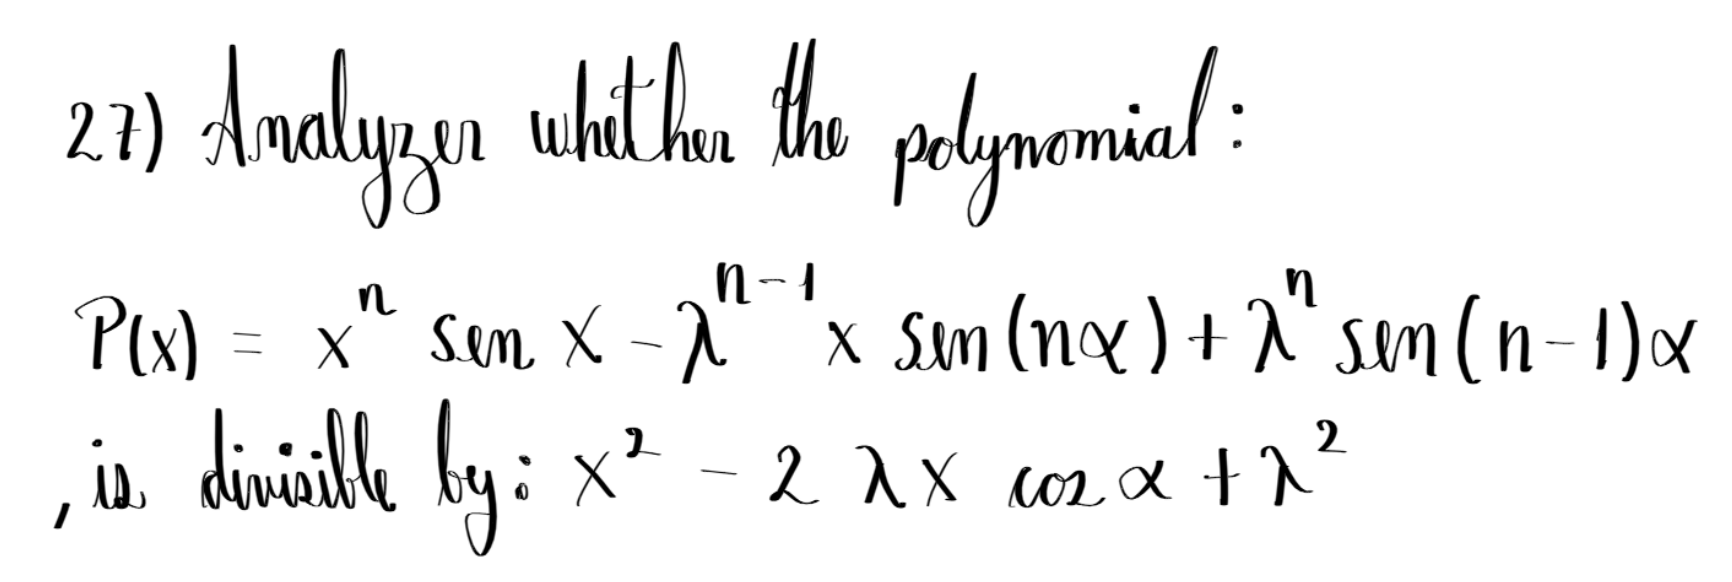 27) Analyzer whether the polynomial:
P(x) = xⁿ sen x - λⁿ⁻¹ x sen(nα) + λⁿ sen(n-1)α
, is divisible by: x² - 2 λx cos α + λ²